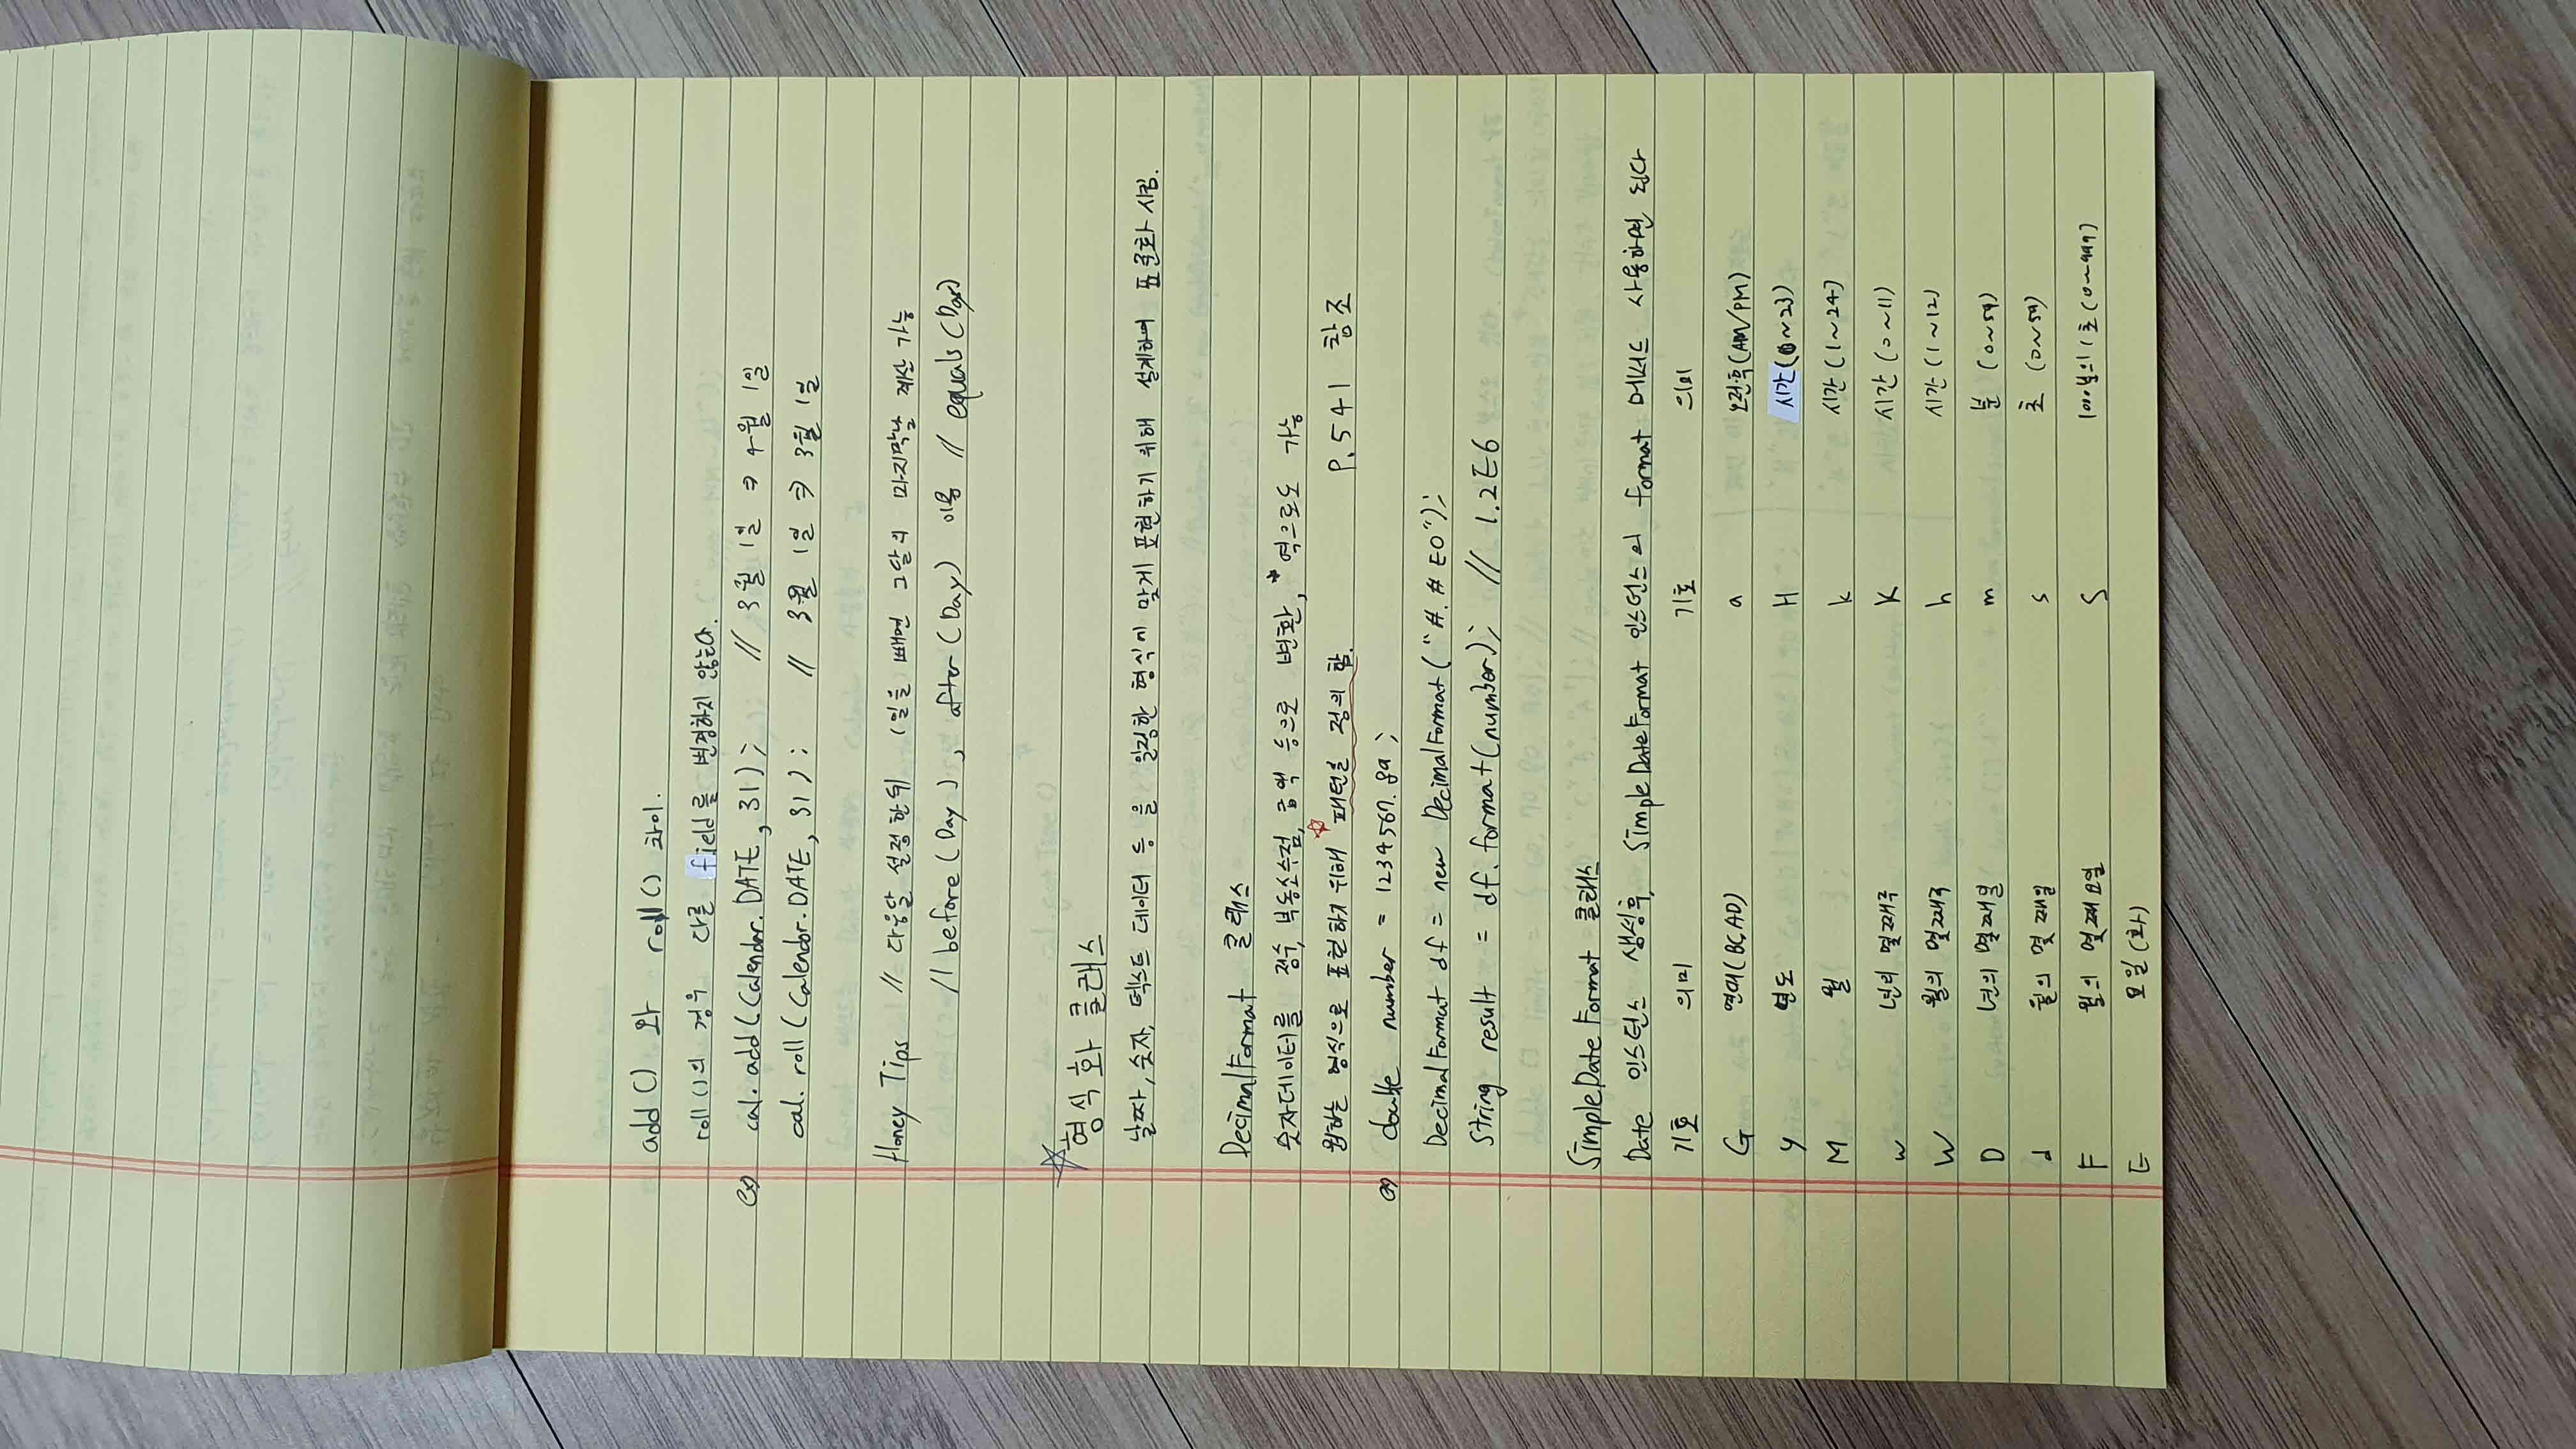 add() 와 roll() 차이.
roll()의 경우 다른 field를 변경하지 않는다.
ex) cal.add(Calendar.DATE, 31); // 3월 1일 ⇒ 4월 1일
cal.roll(Calendar.DATE, 31); // 3월 1일 ⇒ 3월 1일
Honey Tips // 다음달 설정한뒤 1일을 빼면 그달의 마지막날 계산 가능
// before(Day), after(Day) 이용 // equals(Day)
☆형식화 클래스
날짜, 숫자, 텍스트 데이터 등 을 일정한 형식에 맞게 표현하기 위해 설계하며 표준화 시킴.
DecimalFormat 클래스
숫자데이터를 정수, 부동소수점, 금액 등으로 변환, *역으로도 가능
원하는 형식으로 표현하기 위해 ☆패턴을 정의 함. P.541 참조
ex) double number = 1234567.89;
DecimalFormat df = new DecimalFormat("#.#E0");
String result = df.format(number); // 1.2E6
SimpleDateFormat 클래스
Date 인스턴스 생성후, SimpleDateFormat 인스턴스의 format 메서드 사용하면 된다
기호 의미 기호 의미
G 연대(BC,AD) a 오전·후(AM/PM)
y 연도 H 시간(0~23)
M 월 k 시간(1~24)
w 년의 몇째주 K 시간(0~11)
W 월의 몇째주 h 시간(1~12)
D 년의 몇째일 m 분 (0~59)
d 월의 몇 째일 s 초 (0~59)
F 월의 몇째요일 S 1000분의1초(0~999)
E 요일(화)